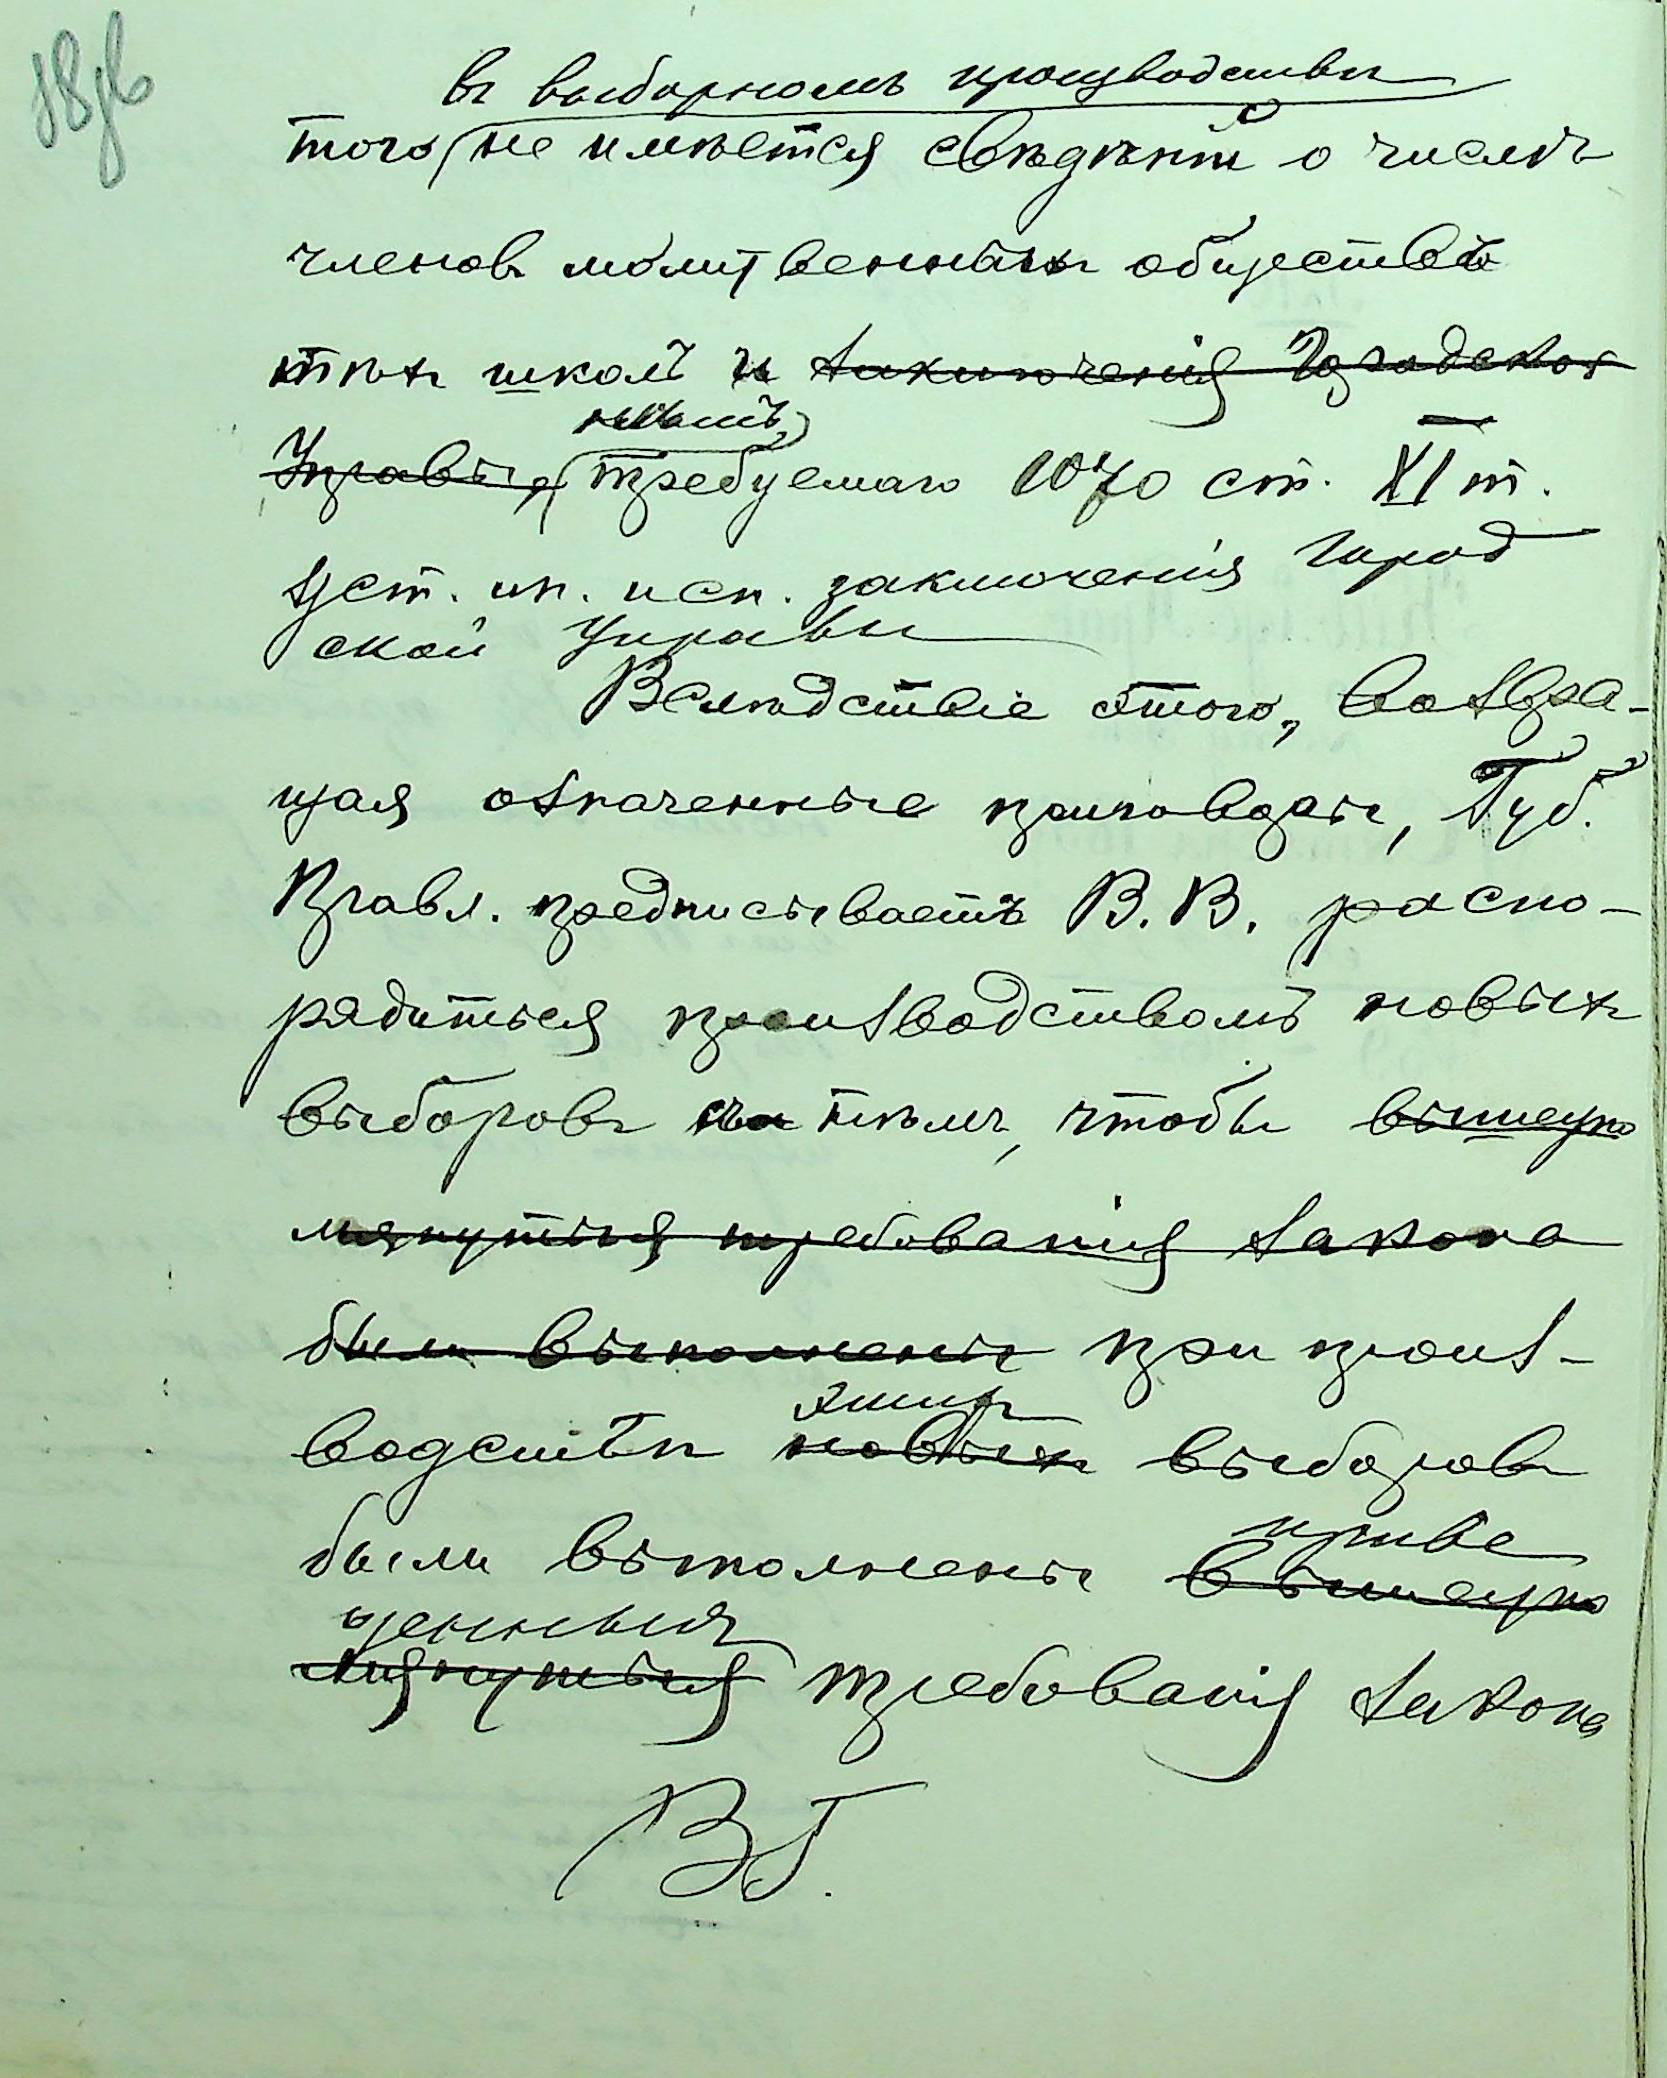 18 об
въ выборномъ производствѣ
того не имѣется свѣдѣній о числѣ
членовъ молитвенныхъ обществъ
тѣхъ школъ и заключенія Городской
нѣтъ
Управы, требуемаго 1070 ст. XI т.
Уст. ин. исп. заключенія Город
ской Управы
Вслѣдствіе этого, возвра-
щая означенные приговоры, Губ.
Правл. предписываетъ В. В. распо-
рядиться производствомъ новыхъ
выборовъ съ тѣмъ, чтобы вышеупо
мянутыя требованія закона
были выполнены при произ-
водствѣ новыхъ выборовъ
были выполнены вышеупо
приве
денныя
мянутыя требованія закона
ВГ.